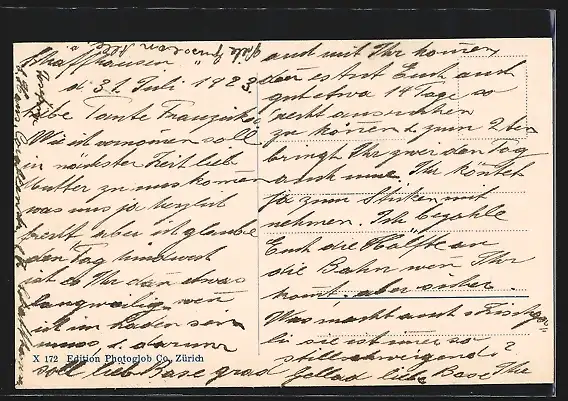 Schaffhausen
d. 31. Juli 1923.
Liebe Tante Franziska
Wie ich vernomen soll
in nächster Zeit lieb
Mutter zu uns komen
was uns ja herzlich
freut aber ich glaube
den Tag hindurch
ist es Ihr dan etwas
langweilig, wen
ich im Laden sein
muss, d. darum
soll lieb Base grad
auch mit Ihr komen,
den es thut Euch auch
gut etwa 14 Tage so
recht ausruhen
zu könen & zum 2ten
bringt Ihr zwei den Tag
auch ume. Ihr köntet
ja zum Stiken mit
nehmen. Ich bezahle
Euch die Hälfte an
die Bahn wen Ihr
komt, aber sicher.
Was macht auch
li sie ist imer so
stillschweigend?
liebe Base Ihr
Viele Grüsse an Alle
X 172 Edition Photoglob Co., Zürich